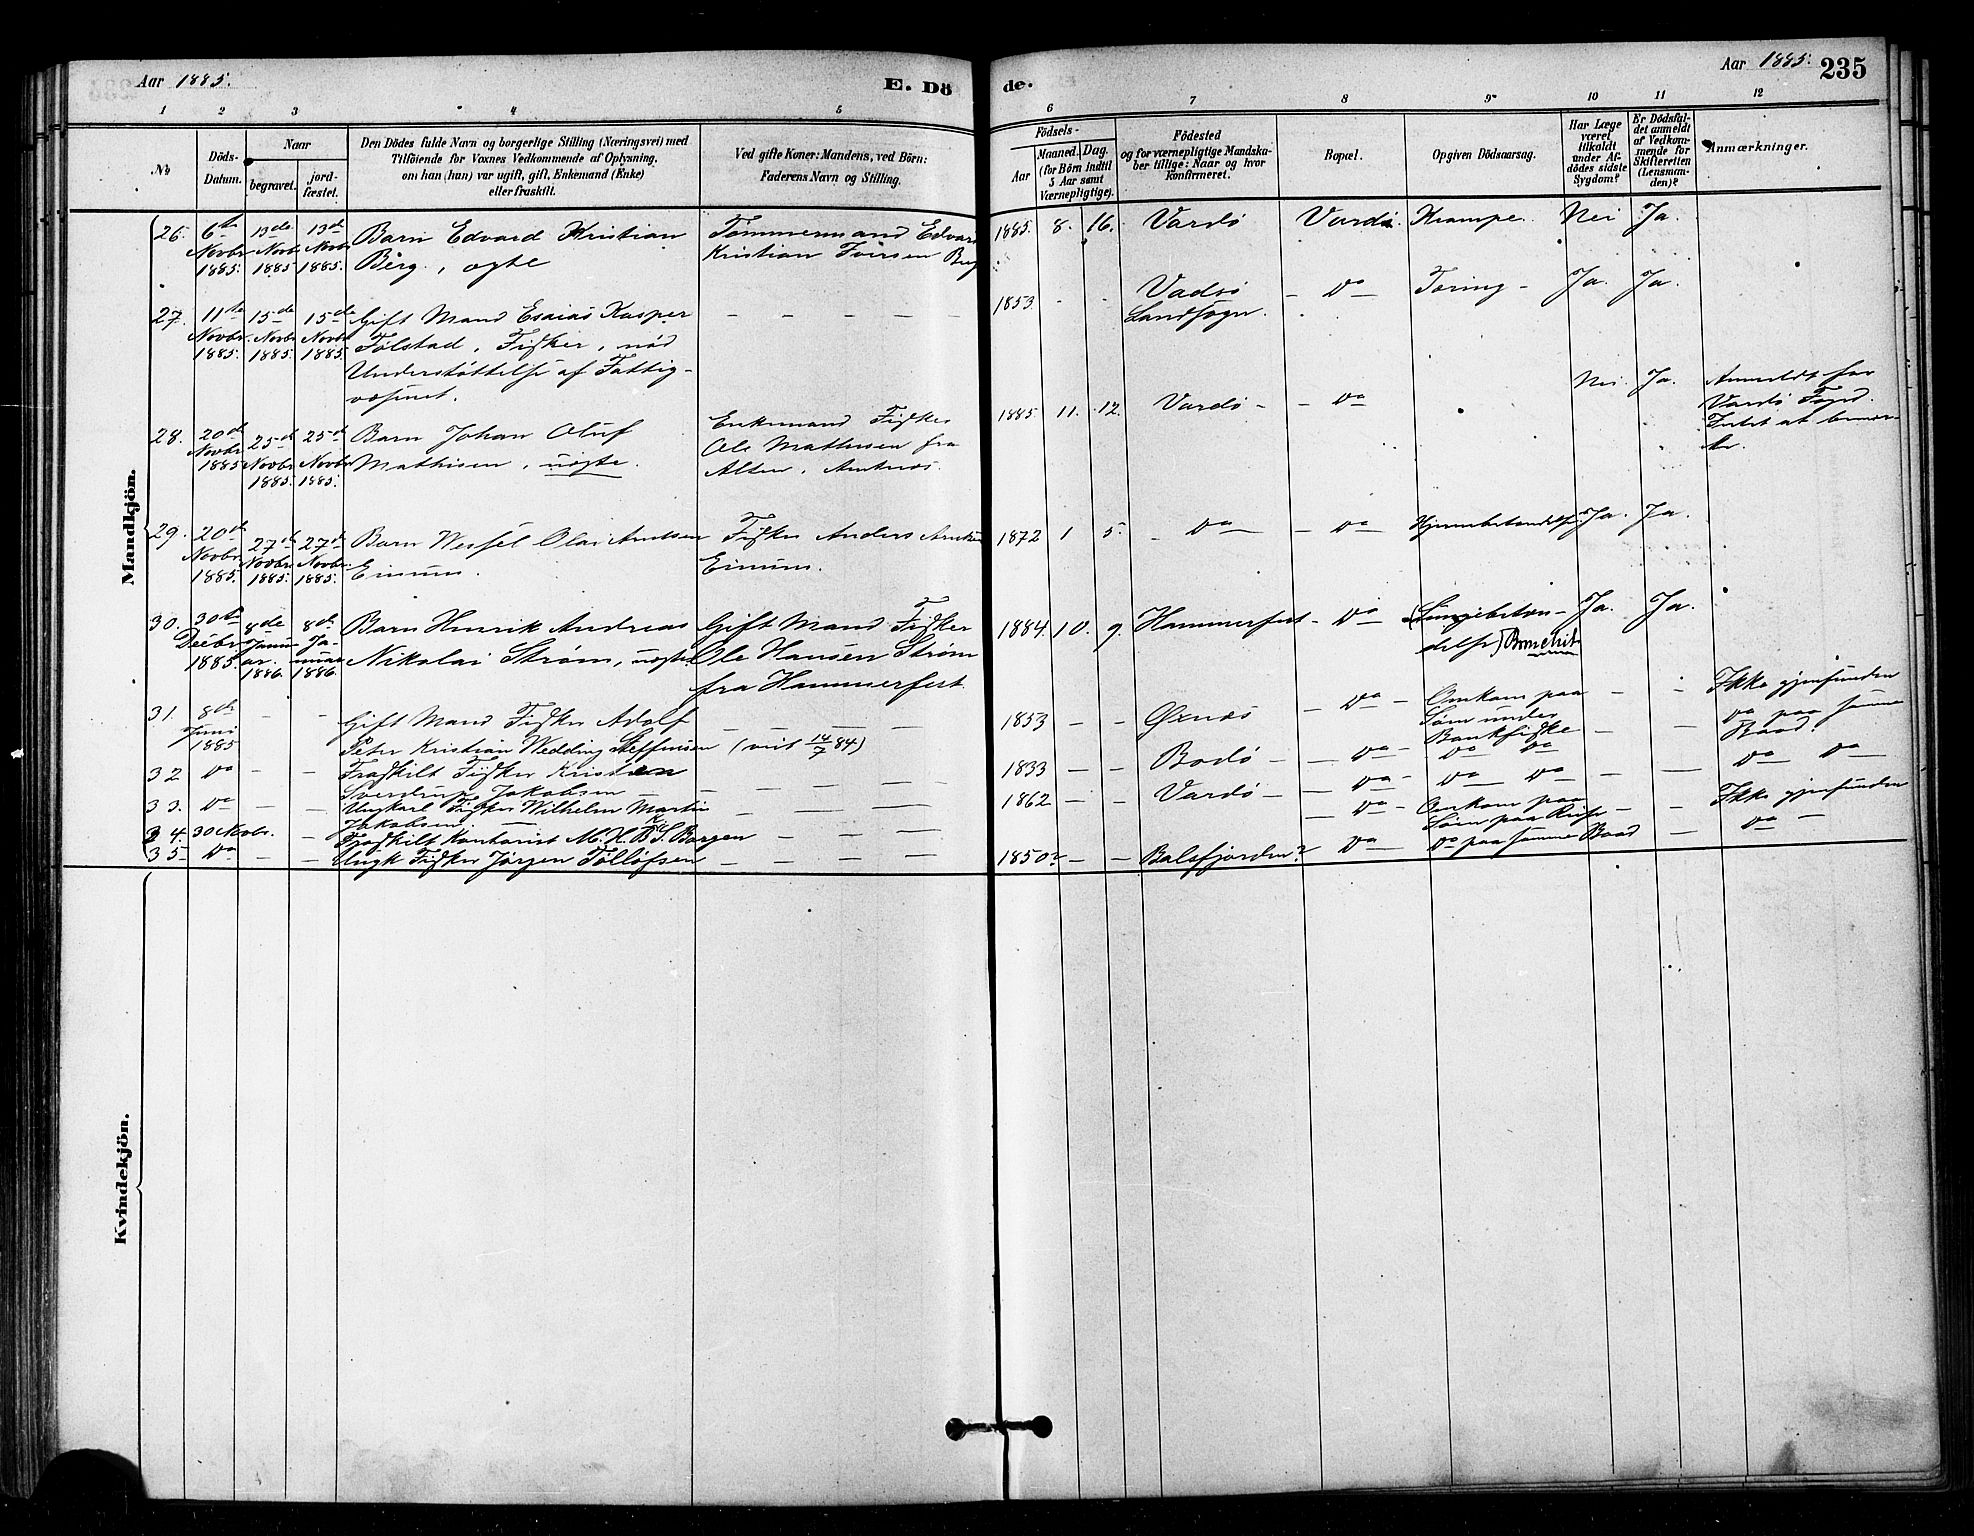 Aar 1885.
E. Dö
de.
Aar 1885.
235
1 2 3 4 5
6 7 8 9 10 11 12
No
Döds-Datum.
Naar
begravet.
jord-fæstet.
Den Dödes fulde Navn og borgerlige Stilling (Næringsvei) med
Tilföiende for Voxnes Vedkommende af Oplysning,
om han (hun) var ugift, gift, Enkemand (Enke)
eller fraskilt.
Ved gifte Koner: Mandens, ved Börn:
Faderens Navn og Stilling.
Födsels-
Aar
Maaned. Dag.
(for Börn indtil
5 Aar samt
Værnepligtige).
Födested
og for værnepligtige Mandska-
ber tillige: Naar og hvor
konfirmeret.
Bopæl.
Opgiven Dödsaarsag.
Har Læge
været
tilkaldt
under Af-
dödes sidste
Sygdom?
Er Dödsfal-
det anmeldt
af Vedkom-
mende for
Skifteretten
(Lensman-
den)?
Anmærkninger.
Mandkjön.
26. 6te Novbr 1885. 13de Novbr 1885 13de Novbr 1885.
Barn Edvard Kristian
Berg, ægte
Tømmermand Edvard
Kristian Iversen Berg
1885. 8. 16. Vardö Vardö. Krampe. Nei Ja.
27. 11te Novbr. 1885. 15de Novbr 1885. 15de Novbr 1885.
Gift Mand Esaias Kasper
Tølstad, Fisker, nød
Understöttelse af Fattig-
væsenet.
1853 - - Vadsö
Landsogn. - Do - Tæring - Ja. Ja.
28. 20de Novbr 1885 25de Novbr 1885. 25de Novbr 1885.
Barn Johan Oluf
Mathisen, uægte.
Enkemand Fisker
Ole Mathisen fra
Alten,
1885. 11. 12. Vardö - - Do Nei. Ja. Anmeldt for
Vardö Fogd.
Intet at bemær-
ke.
29. 20de Novbr 1885. 27de Novbr 1885. 27de Novbr. 1885.
Barn Wessel Olai Arntsen
Einum.
Fisker Anders Arntsen
Einum.
1872 1 5. - Do - - Do Hjernebetændelse. Ja. Ja.
30. 30te Decbr 1885. 8de Januar. 1886. 8de Januar 1886.
Barn Henrik Andreas
Nikolai Strøm, uægte
Gift Mand Fisker
Ole Hansen Strøm
fra Hammerfest.
1884. 10. 9. Hammerfest - Do - (Lungebetæn-
delse) Bronchit Ja. Ja.
31. 8de Juni 1885 - -
Gift Mand Fisker Adolf
Peter Kristian Wedding Steffensen (viet 14/7 84)
1853 - - Øxnæs - Do - Omkom paa
Søen under
Bankfiske - - Ikke gjenfunden
32 Do - - Fraskilt Fisker Kristen
Sverdrup Jakobsen
1833 - - Bodö - - Do - Do Do - - Do paa samme
Baad.
33. Do - - Ungkarl Fisker Wilhelm Martin
Jakobsen.
1862 - - Vardö - - Do - Do Do - - Do Do
34. 30 Novbr. - Fraskilt Kontorist M. H. B. S. Borgen
- Do - Omkom paa
Søen paa Reise - - Ikke gjenfunden
35 Do - - Ungk Fisker Jørgen Tøllefsen
1850? - - Balsfjorden? Do - Do paa samme Baad - Do -
Kvindekjön.